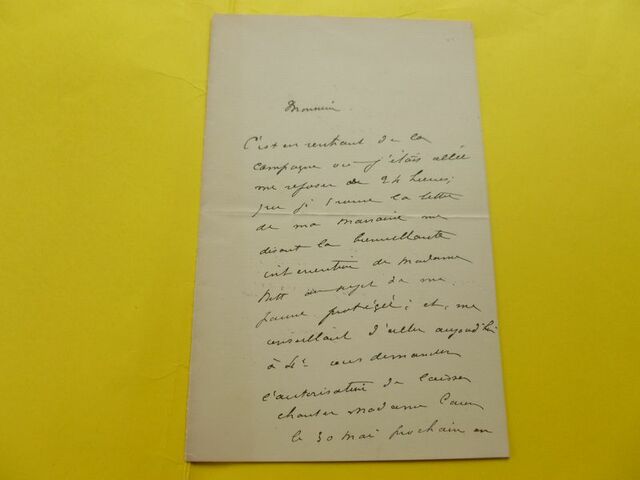 Monsieur
C'est en rentrant de la
campagne où j'étais allée
me reposer de 24 heures,
que j'trouve la lettre
de ma marraine me
disant la bienveillante
intervention de Madame
au sujet de ma
jeune protégée; et, me
conseillant d'aller aujourd'hui
à 4h vous demander
l'autorisation de laisser
chanter Madame
le 30 mai prochain en